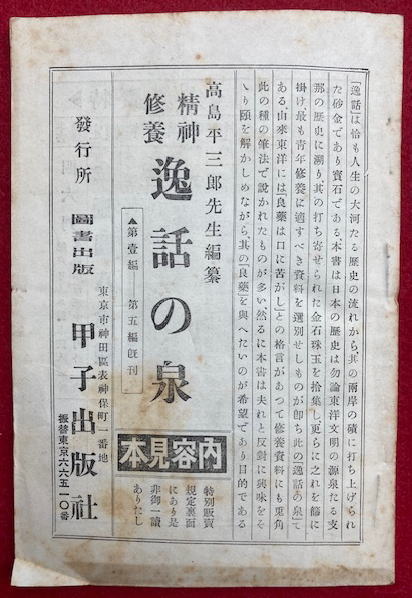 「逸話」は恰も人生の大河たる歷史の流れから、其の兩岸の磧に打ち上げられ
た砂金であり寶石である、本書は日本の歷史は勿論東洋文明の源泉たる支
那の歷史に溯り其の打ち寄せられた金石珠玉を拾集し更らに之れを篩に
掛け、最も青年修養に適すべき資料を選別せしものが卽ち此の「逸話の泉」で
ある、由來東洋には「良藥は口に苦がし」との格言があつて修養資料にも兎角
此の種の筆法で說かれたものが多い然るに本書は夫れと反對に興味をそ
ゝり頤を解かしめながら、其の「良藥」を與へたいのが希望であり目的である
高島平三郎先生編纂
精神修養
逸話の泉
▲第壹編　第五編旣刊
內容見本
特別販賣
規定裏面
にあり是
非御一讀
ありたし
發行所
圖書出版
東京市神田區表神保町一番地
甲子出版社
振替東京六六五一〇番